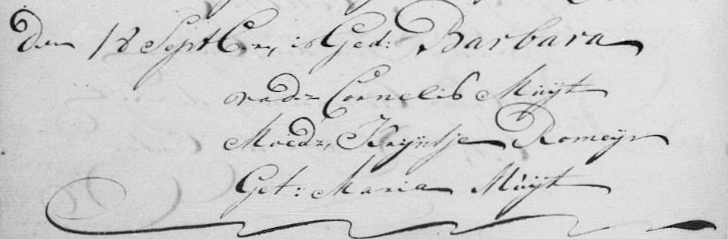 Den 18 Septbr, is Ged: Barbara
vadr Cornelis Muijt
Moedr, Krijntje Romeijn
Get: Maria Muijt